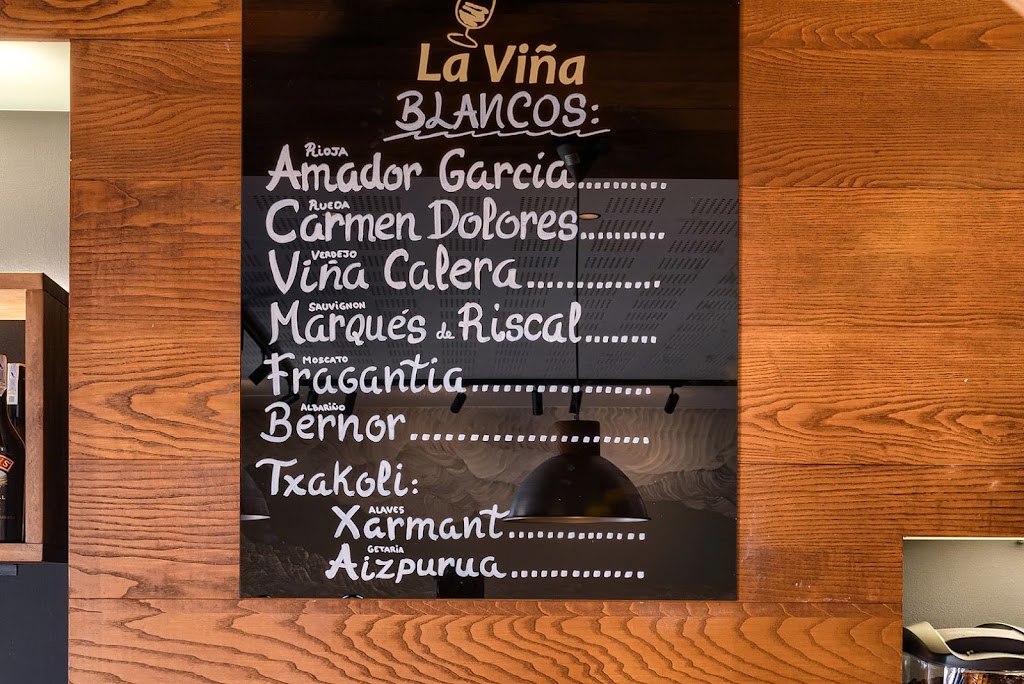 La Viña
BLANCOS:
RIOJA
Amador García..........
RUEDA
Carmen Dolores..........
VERDEJO
Viña Calera..............
SAUVIGNON
Marqués de Riscal........
MOSCATO
Fragantia...................
ALBARIÑO
Bernor.........................
Txakoli:
ALAVES
Xarmant...............
GETARIA
Aizpurua..............